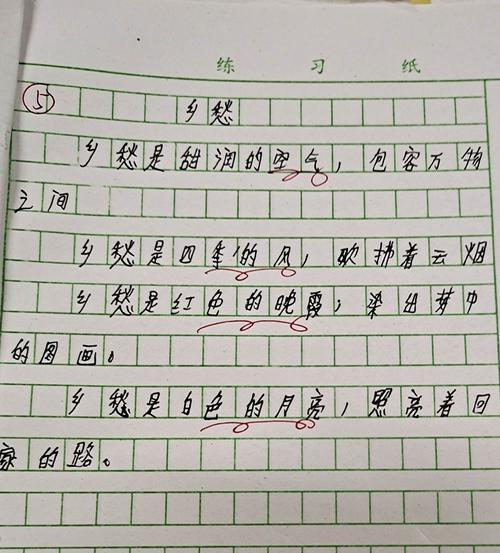 练习纸
5
乡愁
乡愁是甜润的空气，包容万物
之间
乡愁是四季的风，吹拂着云烟
乡愁是红色的晚霞，染出梦中
的图画。
乡愁是白色的月亮，照亮着回
家的路。